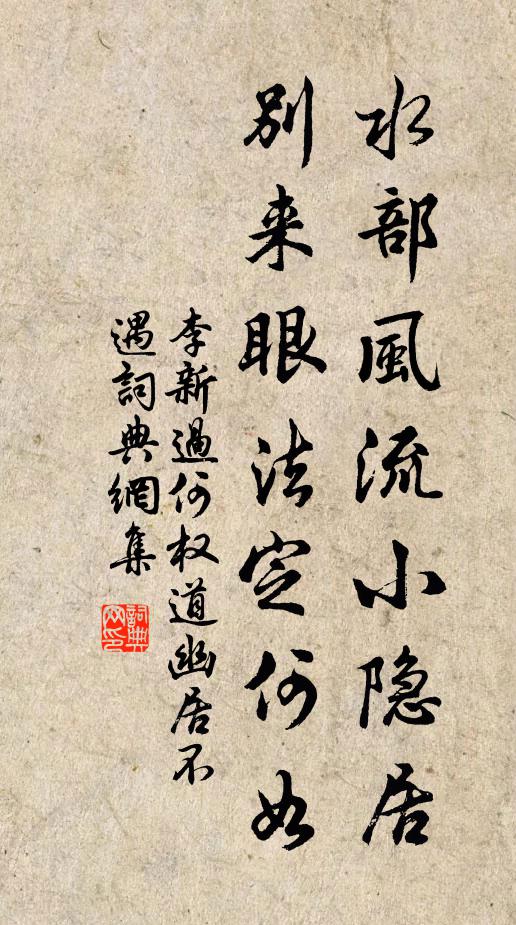 水部風流小隐居
别来眼法定何如
李新過何权道幽居不
遇詞典網集
詞典網印